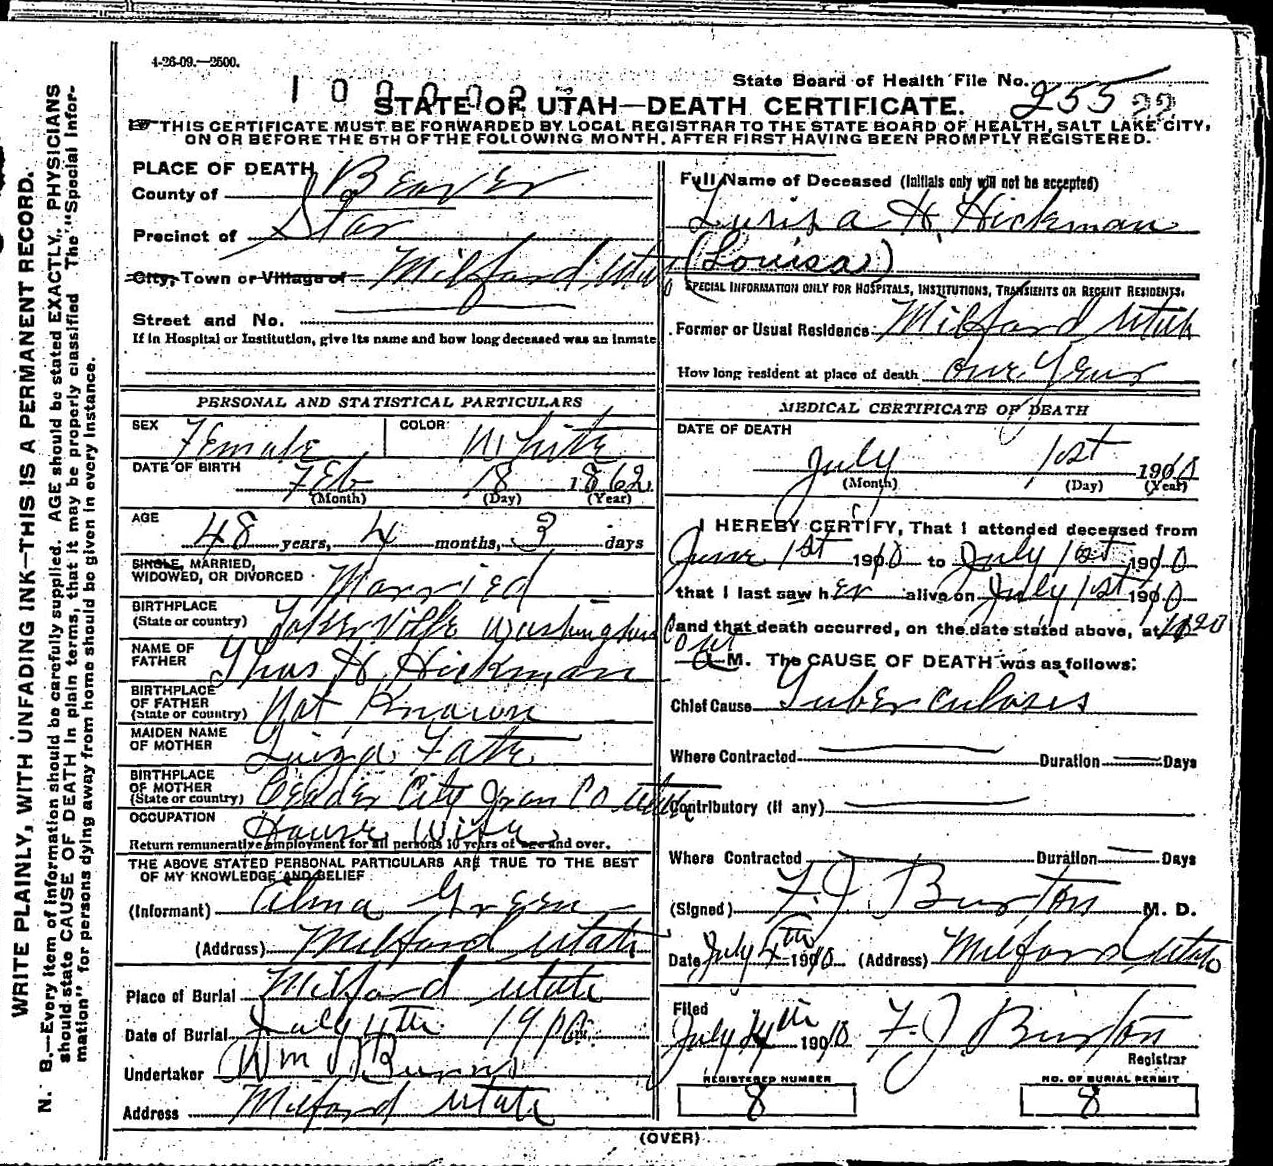 4-26-09.—2500.
State Board of Health File No. 255 22
STATE OF UTAH—DEATH CERTIFICATE.
THIS CERTIFICATE MUST BE FORWARDED BY LOCAL REGISTRAR TO THE STATE BOARD OF HEALTH, SALT LAKE CITY,
ON OR BEFORE THE 5TH OF THE FOLLOWING MONTH, AFTER FIRST HAVING BEEN PROMPTLY REGISTERED.
WRITE PLAINLY, WITH UNFADING INK—THIS IS A PERMANENT RECORD.
N. B.—Every item of information should be carefully supplied. AGE should be stated EXACTLY. PHYSICIANS
should state CAUSE OF DEATH in plain terms, that it may be properly classified. The "Special Infor-
mation" for persons dying away from home should be given in every instance.
PLACE OF DEATH
County of Beaver
Precinct of Star
City, Town or Village of Milford, Utah
Street and No.
If in Hospital or Institution, give its name and how long deceased was an inmate
PERSONAL AND STATISTICAL PARTICULARS
SEX Female COLOR White
DATE OF BIRTH Feb 18 1862
(Month) (Day) (Year)
AGE 48 years, 4 months, 3 days
SINGLE, MARRIED,
WIDOWED, OR DIVORCED Married
BIRTHPLACE
(State or country) Tokerville Washington Co
NAME OF
FATHER Thos H. Hickman
BIRTHPLACE
OF FATHER
(State or country) Not Known
MAIDEN NAME
OF MOTHER
BIRTHPLACE
OF MOTHER
(State or country) Ceader City Iron Co Utah
OCCUPATION House Wife
Return remunerative employment for all persons 10 years of age and over.
THE ABOVE STATED PERSONAL PARTICULARS ARE TRUE TO THE BEST
OF MY KNOWLEDGE AND BELIEF
(Informant) Alma Green
(Address) Milford Utah
Place of Burial Milford Utah
Date of Burial July 4th 1910
Undertaker Wm Burns
Address Milford Utah
Full Name of Deceased (Initials only will not be accepted)
Lurisa H. Hickman
(Louisa)
SPECIAL INFORMATION ONLY FOR HOSPITALS, INSTITUTIONS, TRANSIENTS OR RECENT RESIDENTS.
Former or Usual Residence Milford Utah
How long resident at place of death one Year
MEDICAL CERTIFICATE OF DEATH
DATE OF DEATH
July 1st 1910
(Month) (Day) (Year)
I HEREBY CERTIFY, That I attended deceased from
June 1st 1910 to July 1st 1910
that I last saw her alive on July 1st 1910
and that death occurred, on the date stated above, at
M. The CAUSE OF DEATH was as follows:
Chief Cause Tuberculosis
Where Contracted Duration Days
Contributory (if any)
Where Contracted Duration Days
(Signed) F. J. Burton M. D.
Date July 4th 1910 (Address) Milford Utah
Filed
July 4th 1910 F. J. Burton
Registrar
REGISTERED NUMBER NO. OF BURIAL PERMIT
8 8
(OVER)